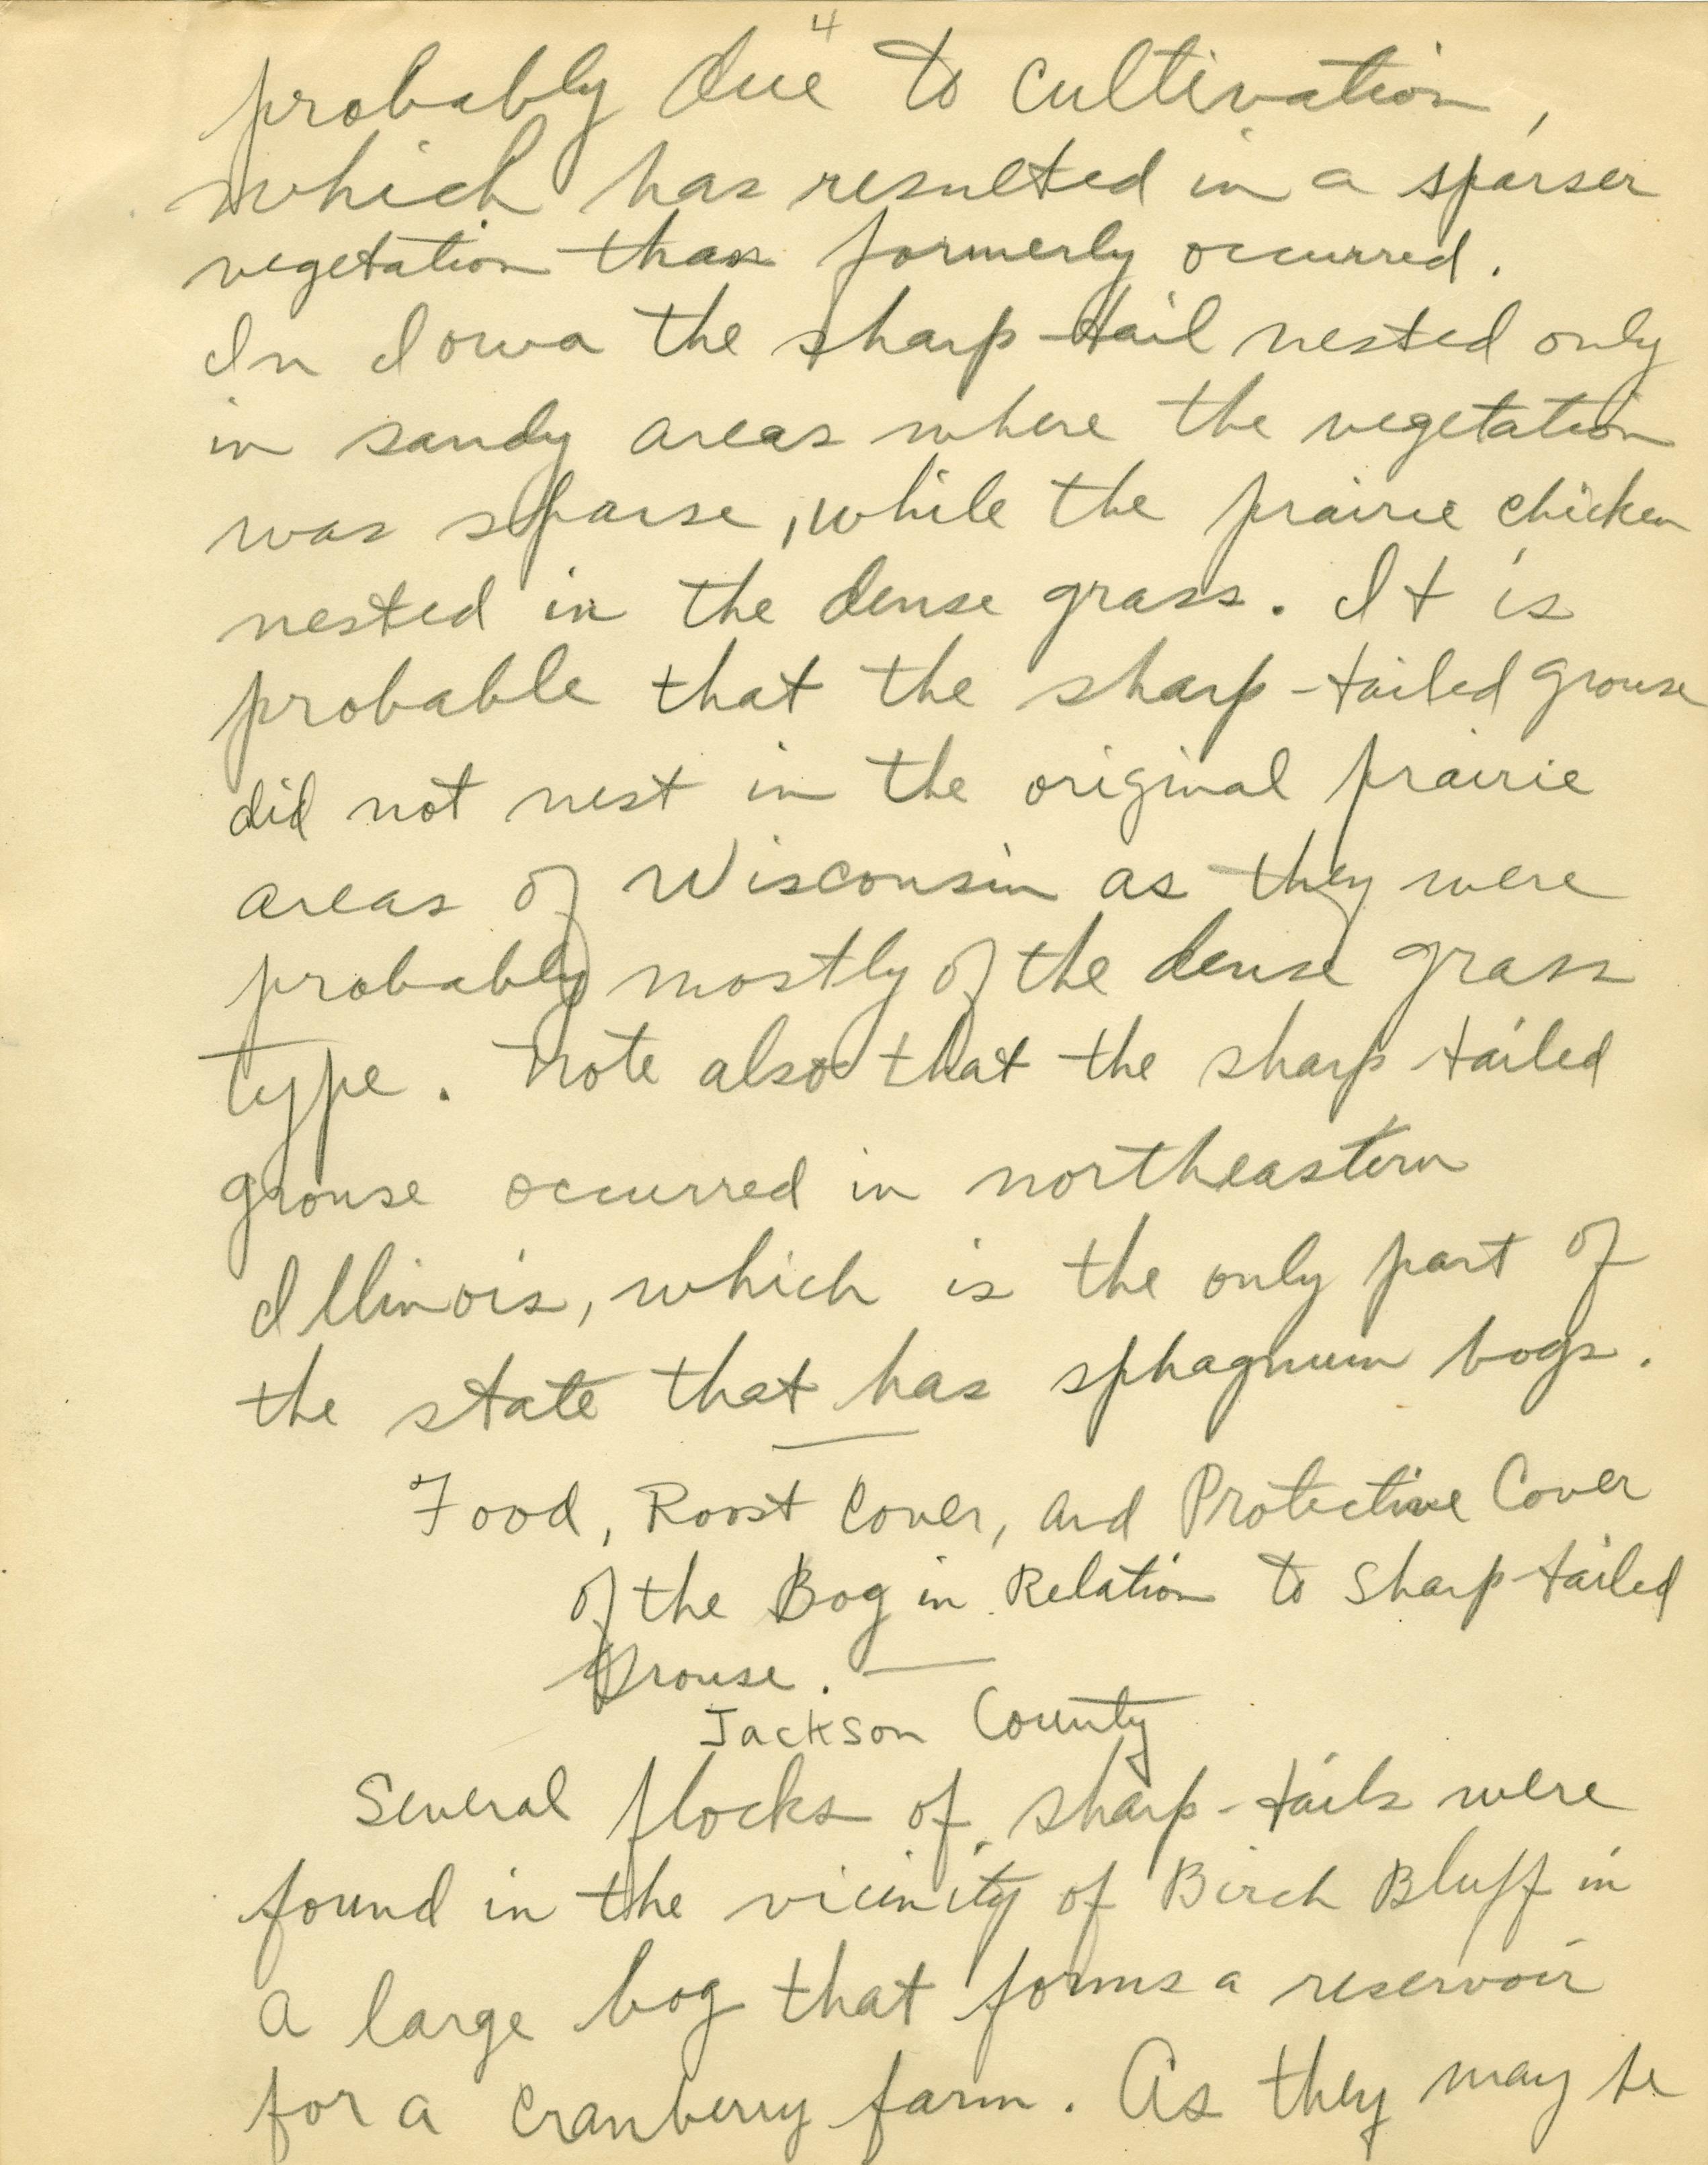 4
probably due to cultivation,
which has resulted in a sparser
vegetation than formerly occurred.
In Iowa the sharp-tail nested only
in sandy areas where the vegetation
was sparse, while the prairie chicken
nested in the dense grass. It is
probable that the sharp-tailed grouse
did not nest in the original prairie
areas of Wisconsin as they were
probably mostly of the dense grass
type. Note also that the sharp tailed
grouse occurred in northeastern
Illinois, which is the only part of
the state that has sphagnum bogs.
Food, Roost Cover, and Protective Cover
of the Bog in Relation to Sharp-tailed
Grouse. —
Jackson County
Several flocks of sharp-tails were
found in the vicinity of Birch Bluff in
a large bog that forms a reservoir
for a cranberry farm. As they may be